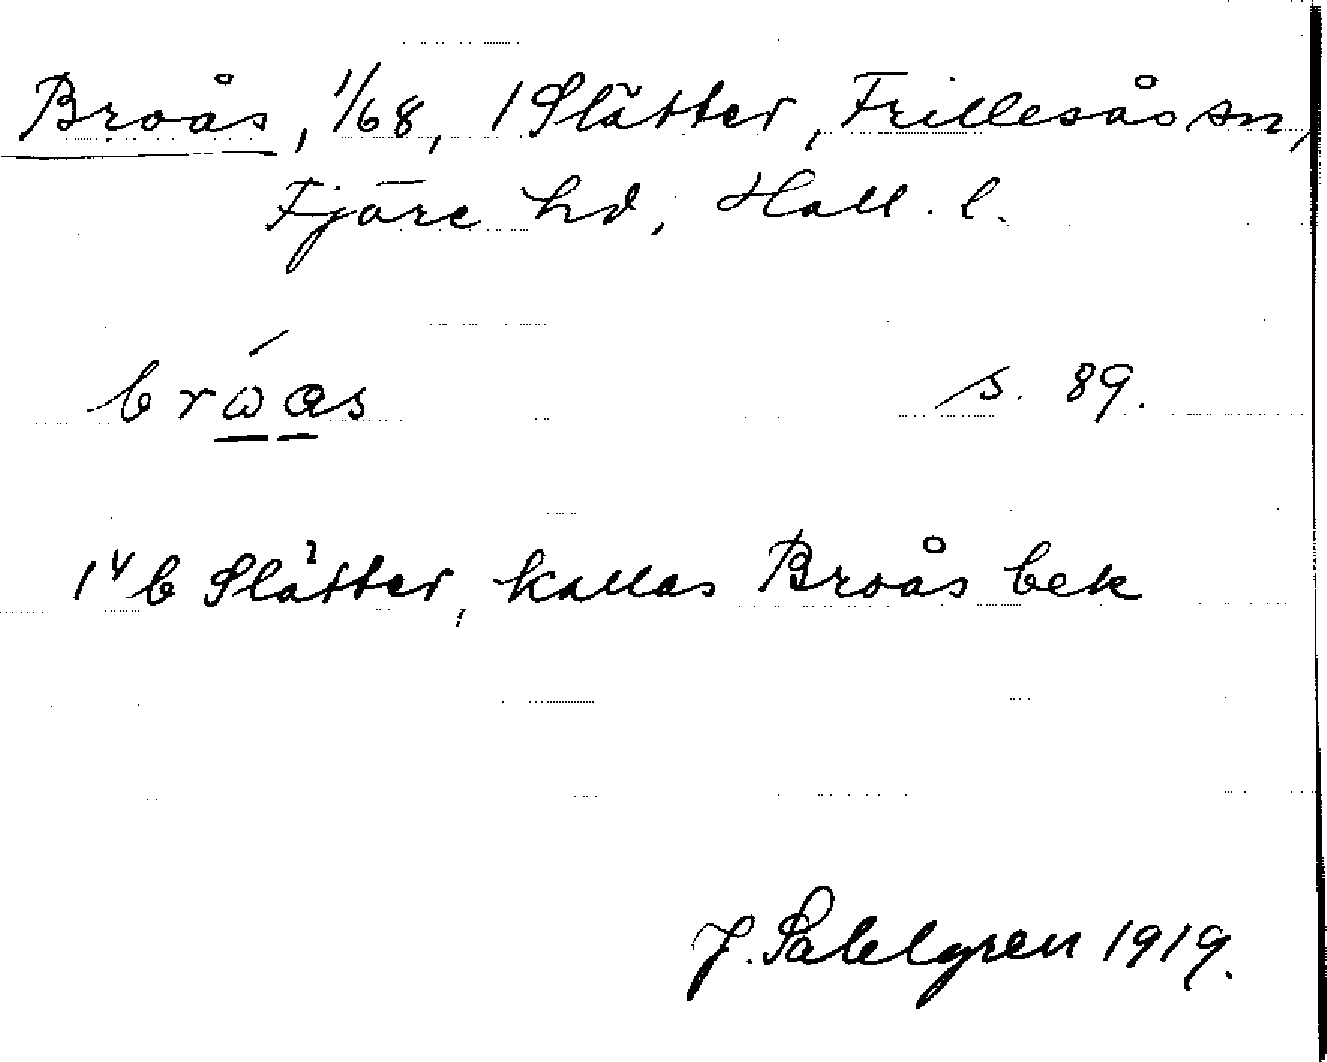 Broås, 1/68, 1 Slätter, Frillesås sn,
Fjäre hd, Hall. l.
brώɑs s. 89.
1⁴ b Slätter, kallas Broås bek
J. Sahlgren 1919.